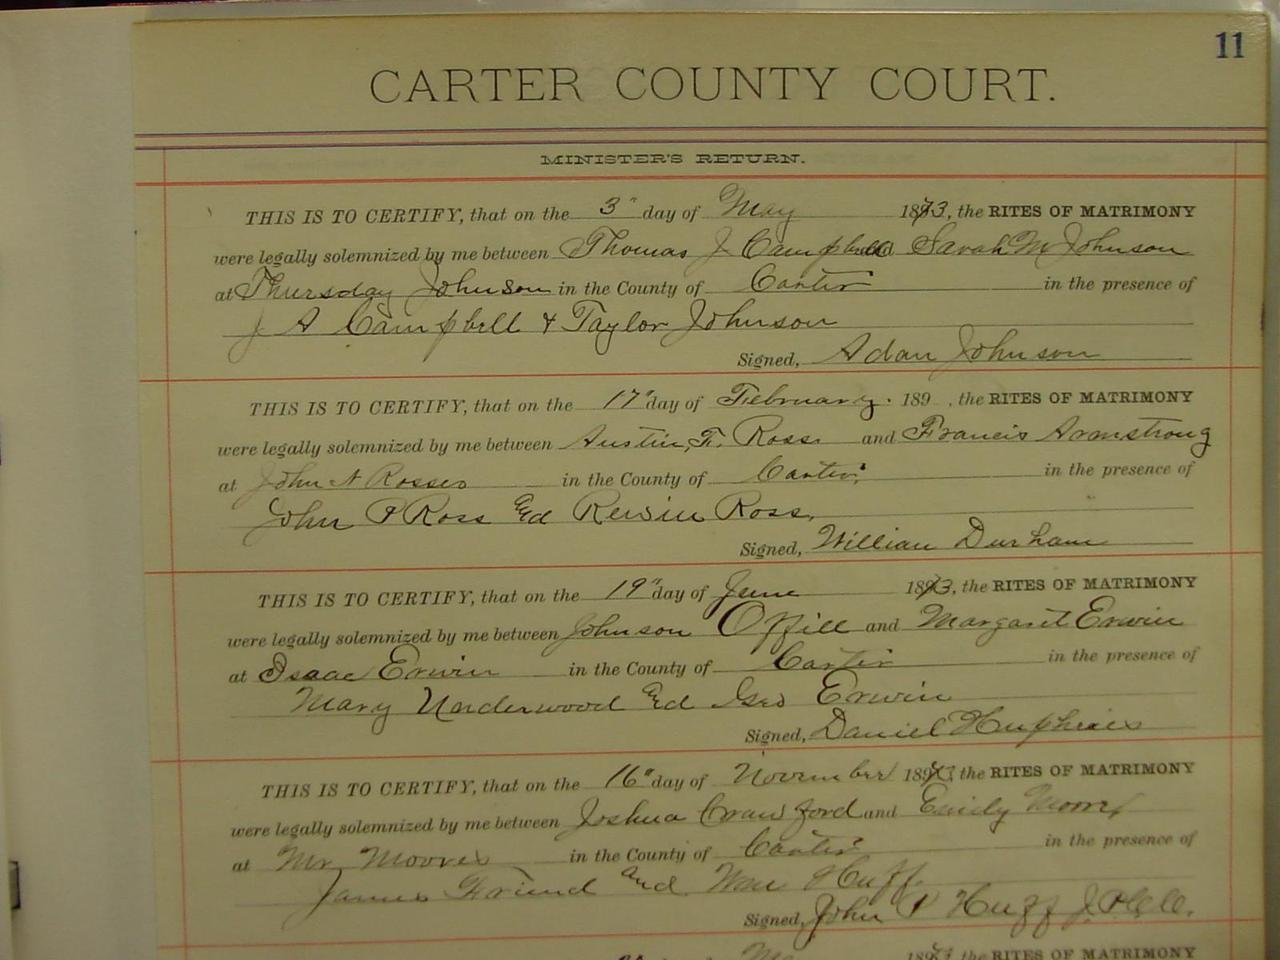 11
CARTER COUNTY COURT.
MINISTER'S RETURN.
THIS IS TO CERTIFY, that on the 3" day of May 1873, the RITES OF MATRIMONY
were legally solemnized by me between Thomas J Campbell and Sarah M Johnson
at Thursday Johnson in the County of Carter in the presence of
J A Campbell & Taylor Johnson
Signed, Adam Johnson
THIS IS TO CERTIFY, that on the 17" day of February. 189 , the RITES OF MATRIMONY
were legally solemnized by me between Austin F. Ross and Francis Armstrong
at John N Rosses in the County of Carter in the presence of
John P Ross And Ross.
Signed, William Durham
THIS IS TO CERTIFY, that on the 19" day of June 1873, the RITES OF MATRIMONY
were legally solemnized by me between Johnson Offill and Margaret Erwin
at Isaac Erwin in the County of Carter in the presence of
Mary Underwood And Geo Erwin
Signed, Daniel Huphries
THIS IS TO CERTIFY, that on the 16" day of November 187, the RITES OF MATRIMONY
were legally solemnized by me between Joshua Crawford and Emily Moore
at Mr Moores in the County of Carter in the presence of
James Friend And Wm Huff.
Signed, John P Huff J.P.C.C.
the RITES OF MATRIMONY